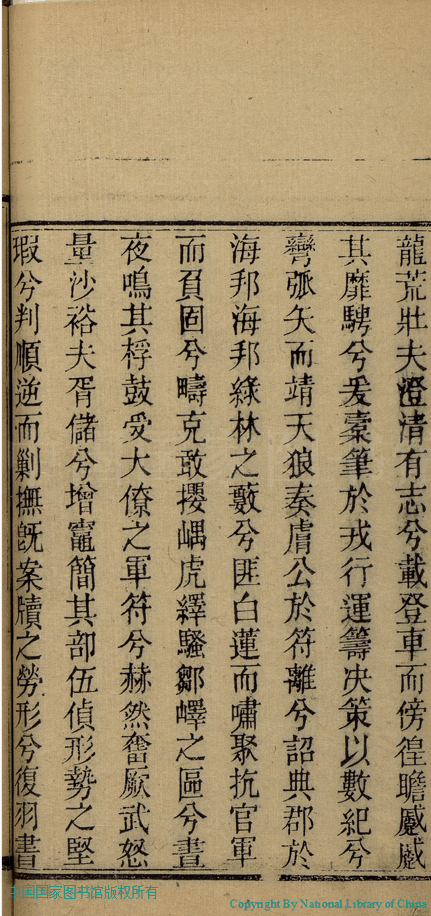 龍荒壯夫澄清有志兮載登車而傍徨瞻蹙蹙
其靡騁兮爰橐筆於戎行運籌决策以數紀兮
彎弧矢而靖天狼奏膚公於符離兮詔典郡於
海邦海邦綠林之藪兮匪白蓮而嘯聚抗官軍
而負固兮疇克敢攖嵎虎繹騷鄒嶧之區兮晝
夜鳴其桴鼓受大僚之軍符兮赫然奮厥武怒
量沙裕夫胥儲兮增竈簡其部伍偵形勢之堅
瑕兮判順逆而剿撫旣案牘之勞形兮復羽書
中国国家图书馆版权所有
Copyright By National Library of China